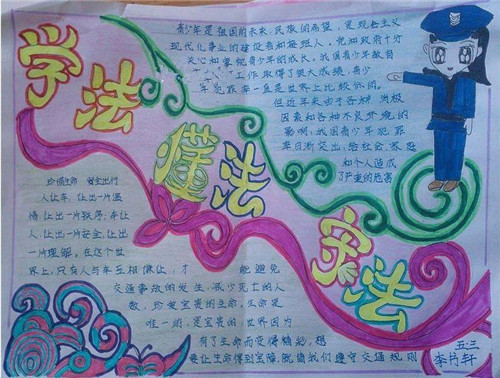 学法
懂法
守法
青少年是祖国的未来,民族的希望,是现社主义
现代化事业的建设者和接班人,党和政府十分
关心和重视青少年的成长,我国青少年教育
工作取得了很大成绩,青少
年犯罪率一直是世界上比较低的。
但近年来由于各种消极
因素和各种不良环境的
影响,我国青少年犯罪
率日渐突出,给社会、家庭
和个人造成
了严重的危害
珍惜生命 安全出行
人让车,让出一片温
情;让出一片秩序;车让
人,让出一片安全,让出
一片理解。在这个世
界上,只有人与车互相像让,才
能避免
交通事故的发生,减少死亡的人
数,珍爱宝贵的生命,生命是
唯一的,是宝贵的,世界因为
有了生命而变得精彩,想
要让生命得到宝障,就请我们遵守交通规则
五三